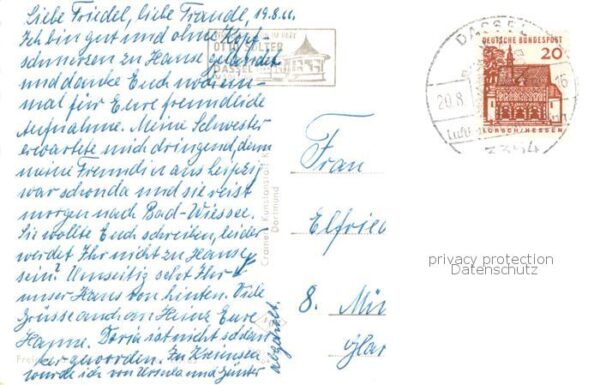 Liebe Friedel, liebe Traudel, 19.8.66
Ich bin gut und ohne Kopf-
schmerzen zu Hause gelandet
und danke Euch noch ein-
mal für Eure freundliche
Aufnahme. Meine Schwester
erwartete mich dringend, denn
meine Freundin aus Leipzig
war schon da und sie reist
morgen nach Bad-Wiessee.
Sie wollte Euch schreiben, leider
werdet Ihr nicht zu Hause
sein? Umseitig seht Ihr
unser Haus von hinten. Viele
Grüsse auch an Heinz Eure
Hanne. ist nicht
geworden. Zu
wurde ich von Ursula und Günter
abgeholt.
OTTO SÜLTER
DASSEL
Cramers Kunstanstalt K
Dortmund
DASSEL
20.8.
16
Luft
3354
DEUTSCHE BUNDESPOST
20
LORSCH/HESSEN
Frau
Elfrie
8. Mü
Har
privacy protection
Datenschutz